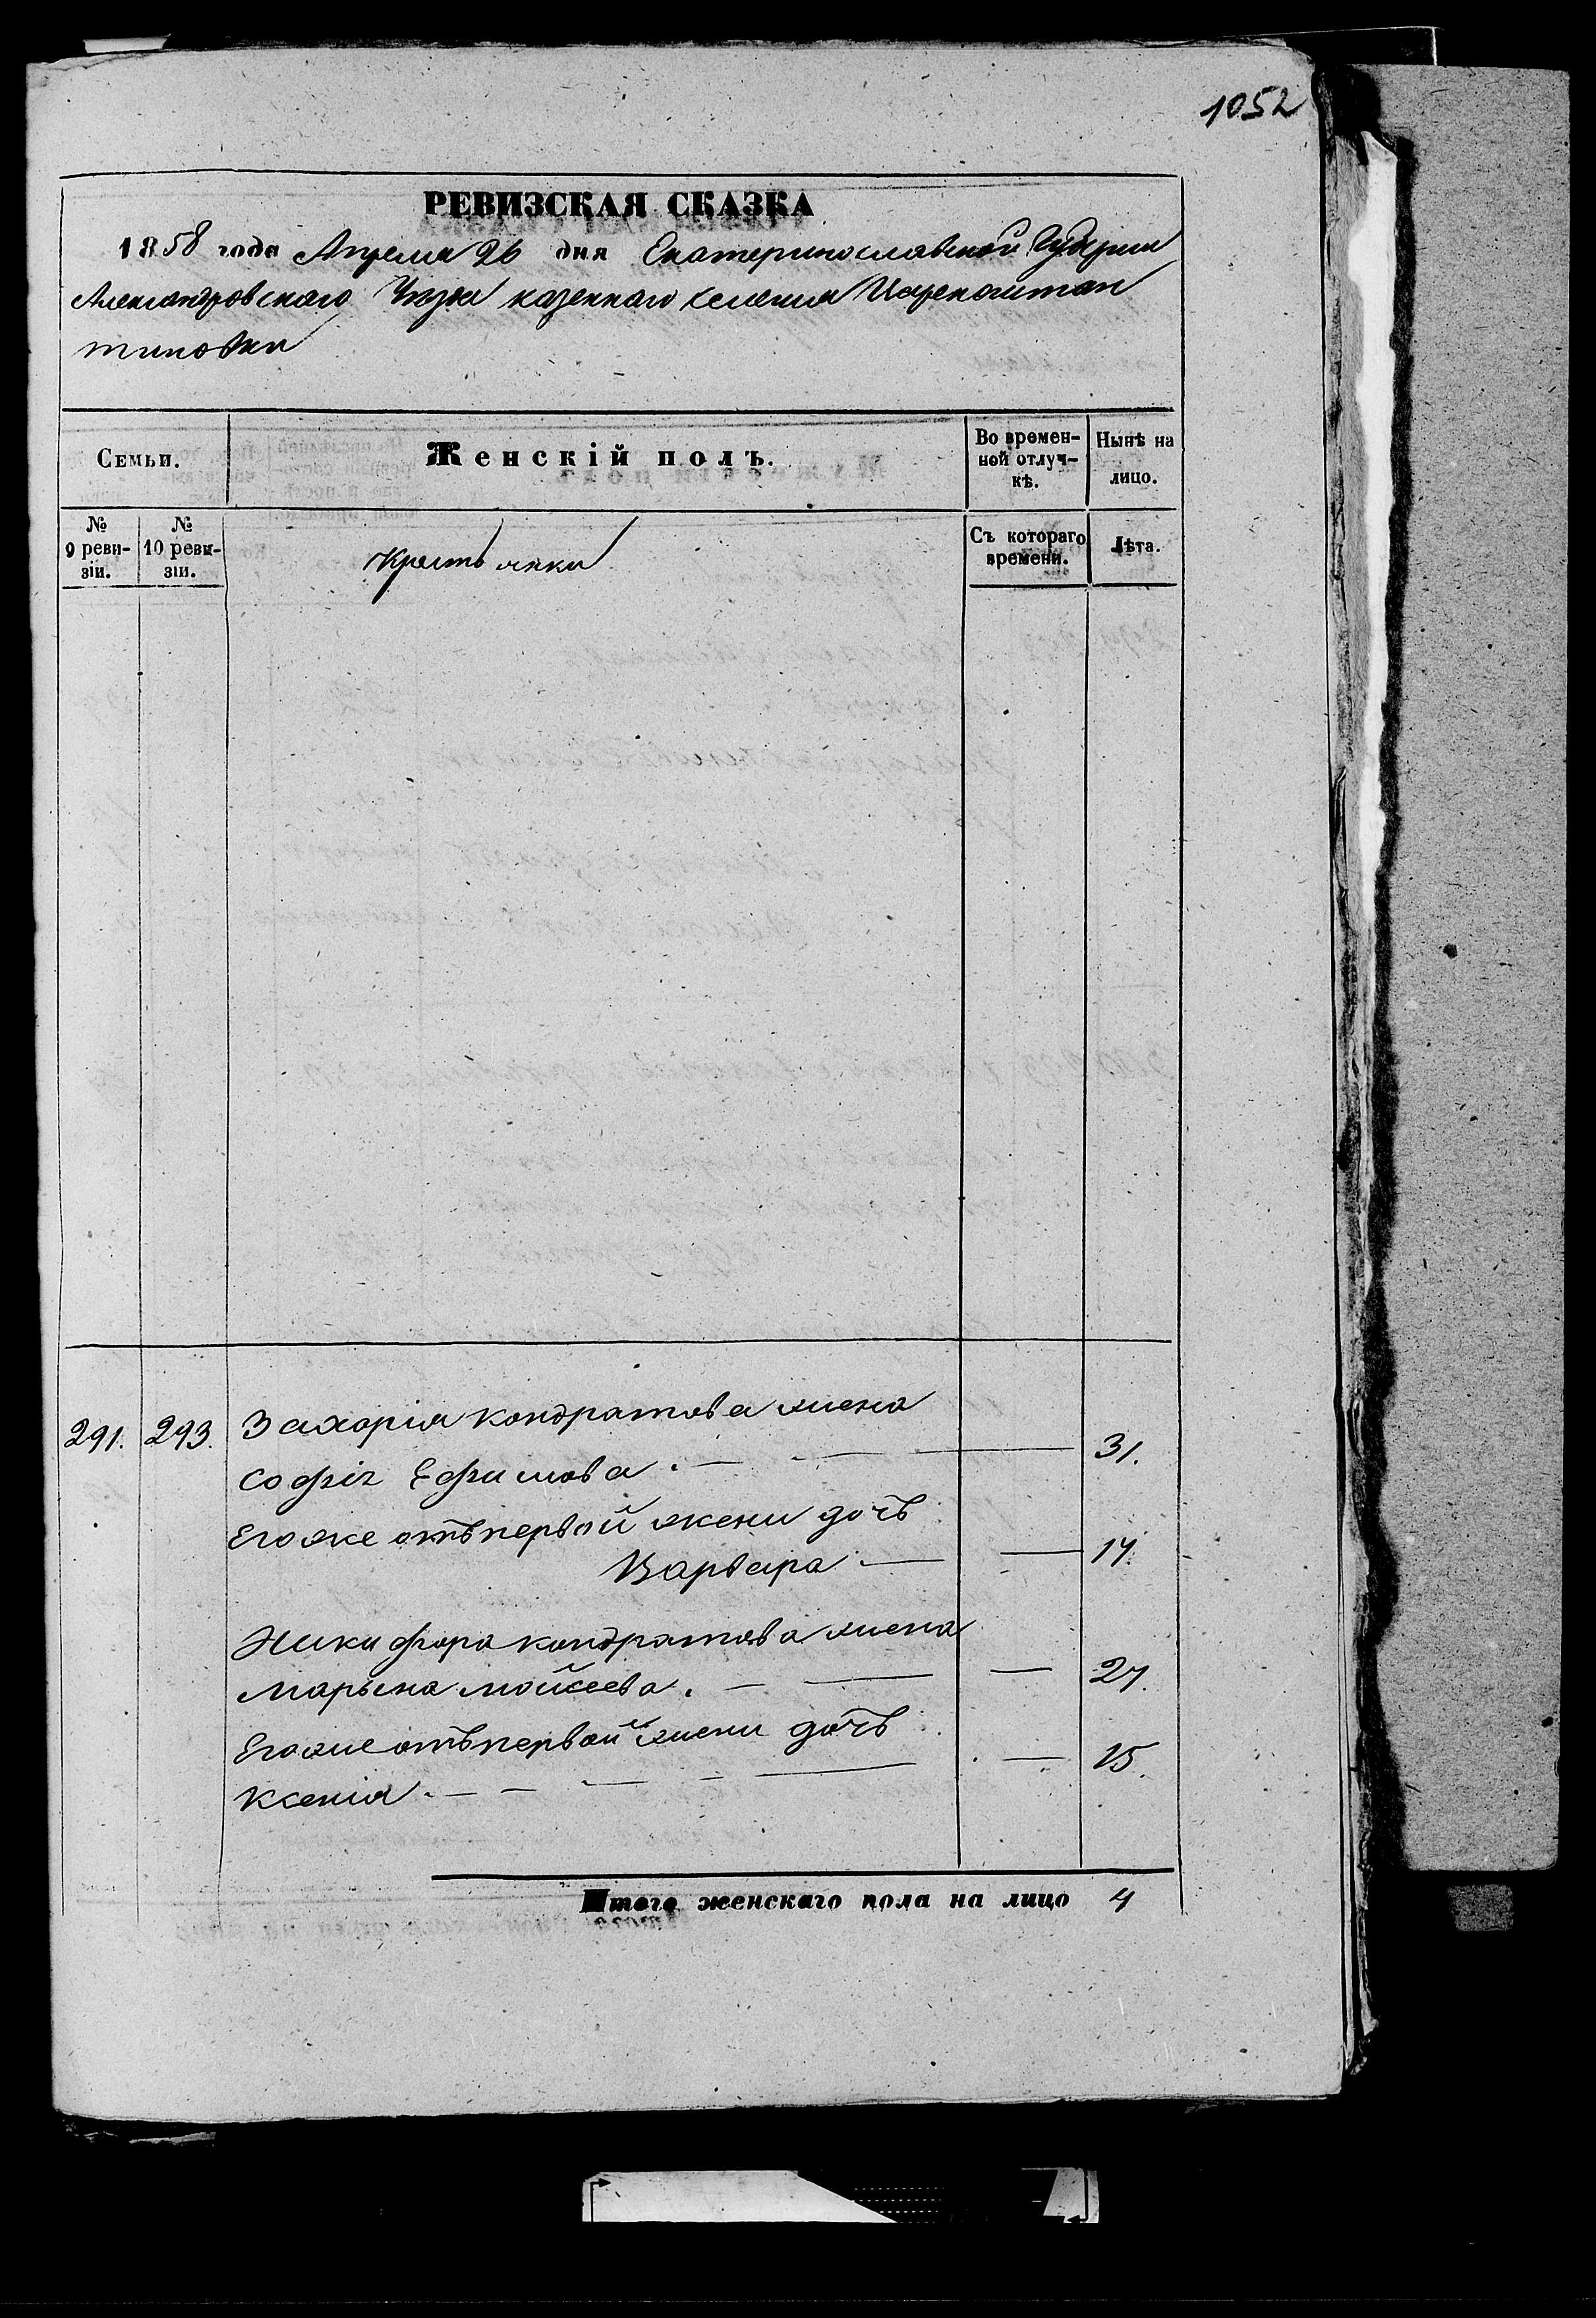 1052
РЕВИЗСКАЯ СКАЗКА
1858 года Апреля 26 дня Екатеринославской Губернии
Александровского Уезда казенного селения Цареконстан
тиновки
Семьи.
Женскій полъ.
Во времен-
ной отлуч-
кѣ.
Нынѣ на
лицо.
№
9 реви-
зіи.
№
10 реви-
зіи.
Крестьянки
Съ котораго
времени.
Лѣта.
291. 293. Захорія Кондратова жена
Софія Ефимова . — — — 31.
Егоже отъ первой жени дочъ
Варвара — — 17.
Никифора Кондратова жена
Марьяна Мойсеева . — — — 27.
Егоже отъ первой жени дочъ
Ксенія . — — — — — — 15.
Итого женскаго пола на лицо 4